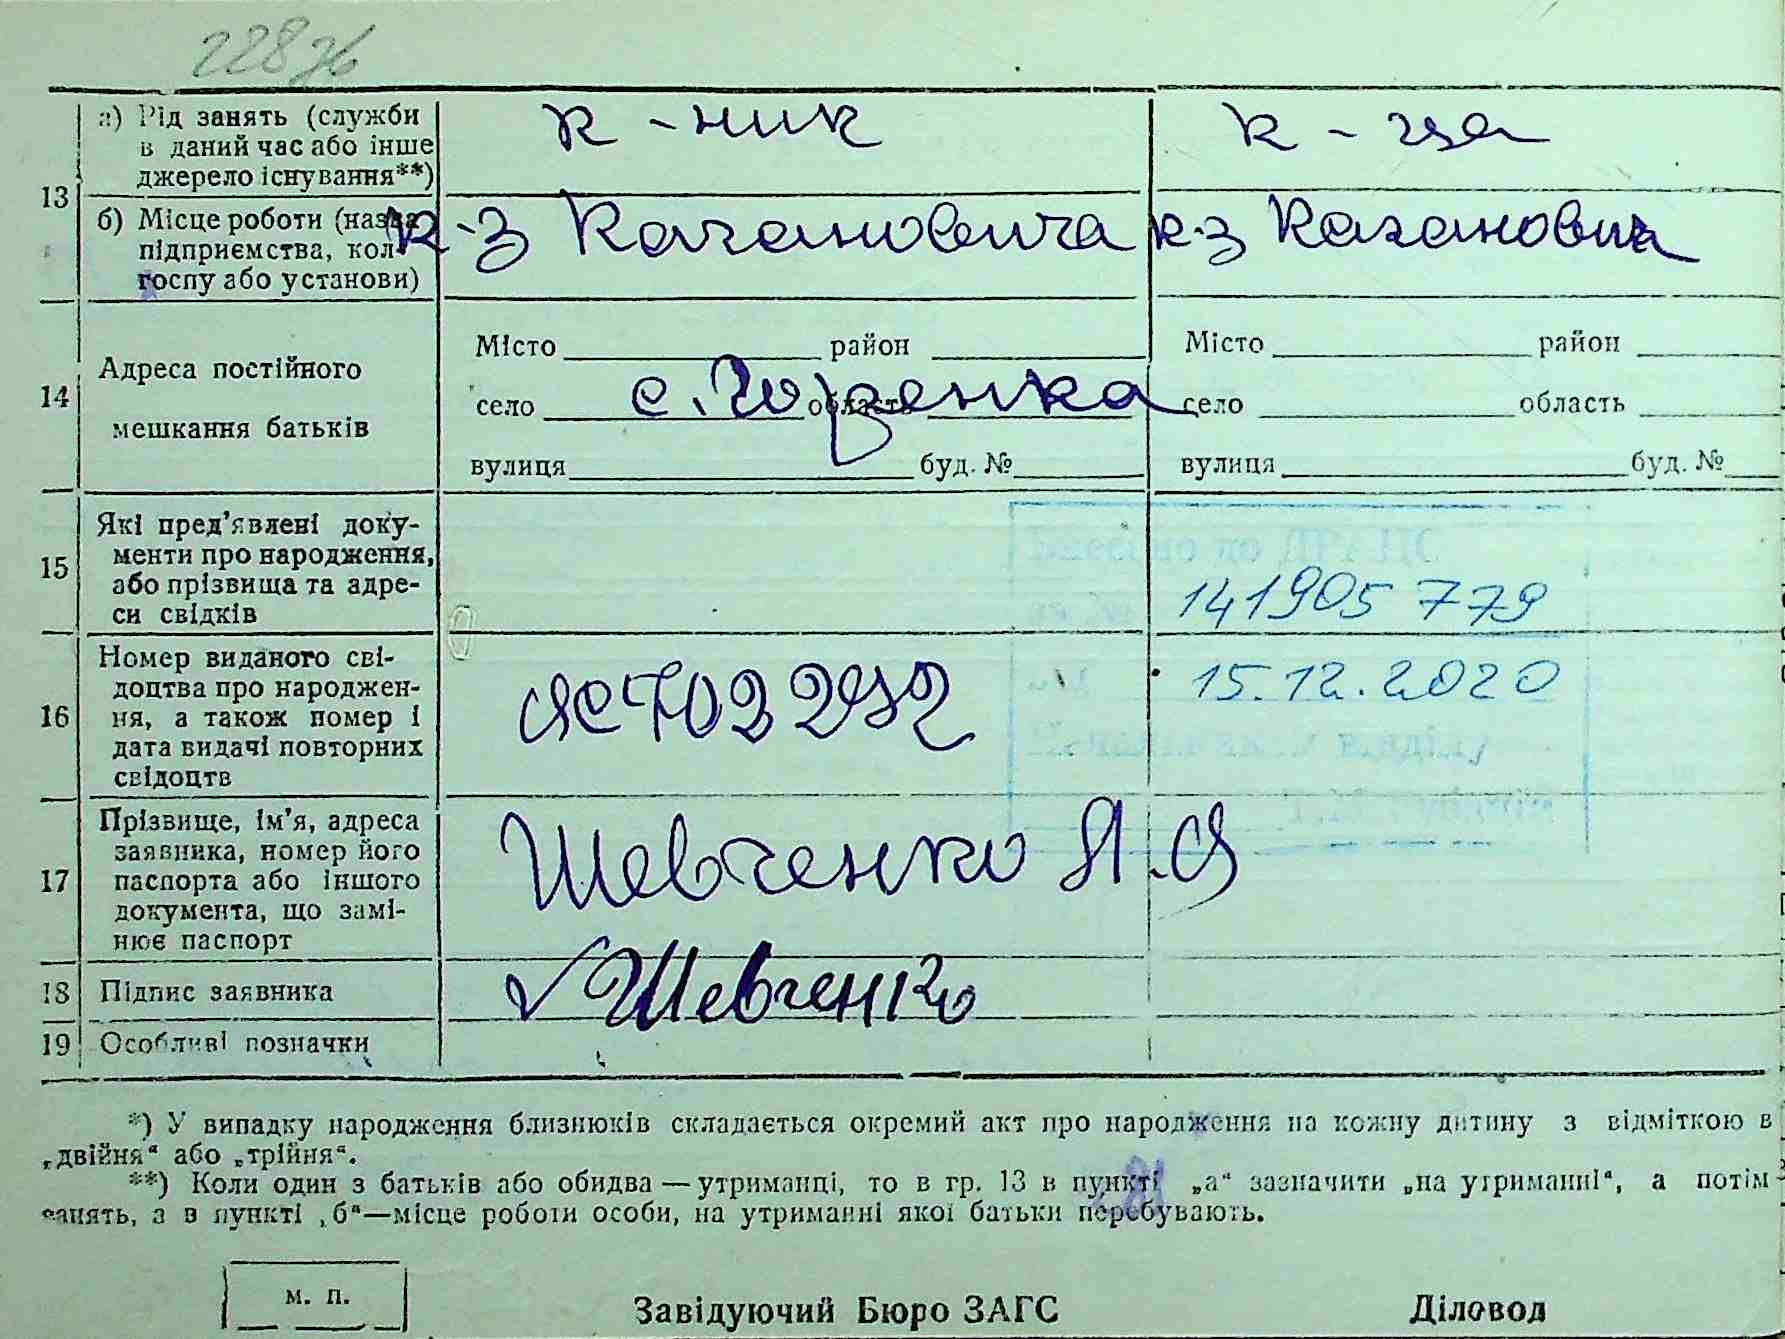 228 зв
13
а) Рід занять (служби
в даний час або інше
джерело існування**)
к-ник
к-ця
б) Місце роботи (назва
підприємства, кол-
госпу або установи)
к-з Кагановича
к-з Кагановича
14
Адреса постійного
мешкання батьків
Місто район
село область
вулиця буд. №
с. Горенка
Місто район
село область
вулиця буд. №
15
Які пред'явлені доку-
менти про народження,
або прізвища та адре-
си свідків
Внесено до ДРАЦС
141905779
16
Номер виданого сві-
доцтва про народжен-
ня, а також номер і
дата видачі повторних
свідоцтв
15.12.2020
Начальник відділу
17
Прізвище, ім'я, адреса
заявника, номер його
паспорта або іншого
документа, що замі-
нює паспорт
Шевченко Я. Я
18
Підпис заявника
Шевченко
19
Особливі позначки
*) У випадку народження близнюків складається окремий акт про народження на кожну дитину з відміткою в
„двійня“ або „трійня“.
**) Коли один з батьків або обидва — утриманці, то в гр. 13 в пункті „а“ зазначити „на утриманні“, а потім
занять, а в пункті „б“ — місце роботи особи, на утриманні якої батьки перебувають.
м. п.
Завідуючий Бюро ЗАГС
Діловод